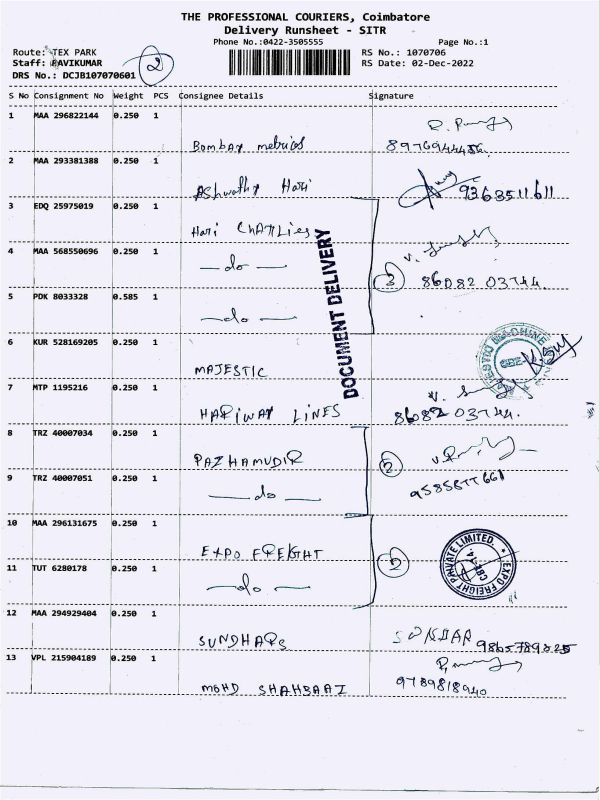 THE PROFESSIONAL COURIERS, Coimbatore
Delivery Runsheet - SITR
Phone No.:0422-3505555 Page No.:1
Route: TEX PARK RS No.: 1070706
Staff: RAVIKUMAR 2 RS Date: 02-Dec-2022
DRS No.: DCJB107070601
S No Consignment No Weight PCS Consignee Details Signature
1 MAA 296822144 0.250 1
Bombay 8976944456
2 MAA 293381388 0.250 1
Ashwathy Hari 9363511611
3 EDQ 25975019 0.250 1
Hari
4 MAA 568550696 0.250 1
— do — 3 86082 03744
5 PDK 8033328 0.585 1
— do —
DOCUMENT DELIVERY
6 KUR 528169205 0.250 1
MAJESTIC
7 MTP 1195216 0.250 1
HARIWAY LINES 86082 03744
8 TRZ 40007034 0.250 1
PAZHAMUDIR 2
9 TRZ 40007051 0.250 1
— do — 9585877661
10 MAA 296131675 0.250 1
EXPO FREIGHT 2
EXPO FREIGHT PRIVATE LIMITED
11 TUT 6280178 0.250 1
— do —
12 MAA 294929404 0.250 1
SUNDHARS 9865789025
13 VPL 215904189 0.250 1
MOHD SHAHBAAZ 9789818940